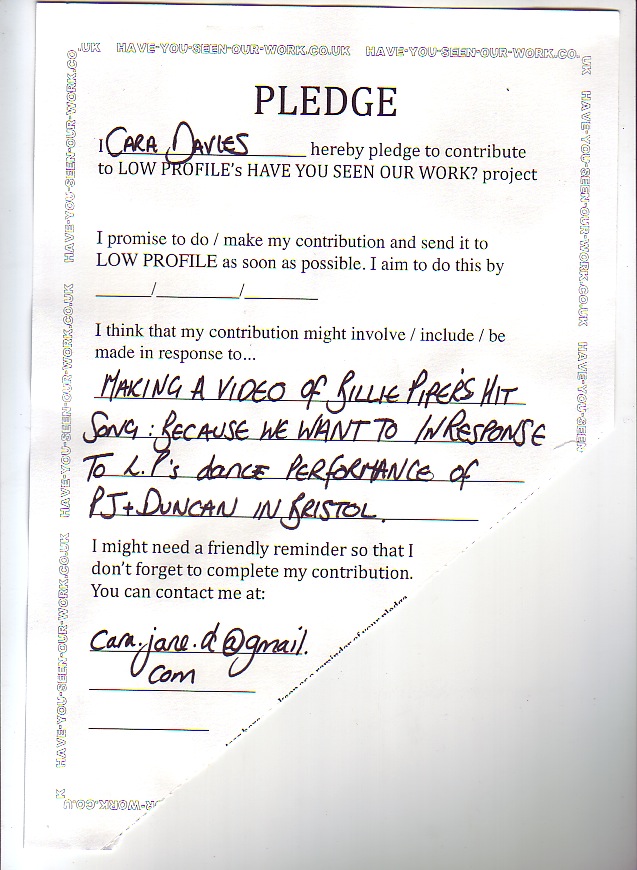 .UK HAVE-YOU-SEEN-OUR-WORK.CO.UK HAVE-YOU-SEEN-OUR-WORK.CO.
UK HAVE-YOU-SEEN-OUR-WORK.CO.UK HAVE-YOU-SEEN
HAVE-YOU-SEEN-OUR-WORK.CO.UK HAVE-YOU-SEEN-OUR-WORK.CO.UK HAVE-YOU-SEEN-OUR-WORK.CO
PLEDGE
I CARA DAVIES hereby pledge to contribute
to LOW PROFILE's HAVE YOU SEEN OUR WORK? project
I promise to do / make my contribution and send it to
LOW PROFILE as soon as possible. I aim to do this by
____/____/____
I think that my contribution might involve / include / be
made in response to...
MAKING A VIDEO OF BILLIE PIPER'S HIT
SONG: BECAUSE WE WANT TO IN RESPONSE
TO L.P's dANCE PERFORMANCE OF
PJ + DUNCAN IN BRISTOL.
I might need a friendly reminder so that I
don't forget to complete my contribution.
You can contact me at:
cara.jane.d@gmail.
com
keep as a reminder of your pledge
K
-WORK.CO.U